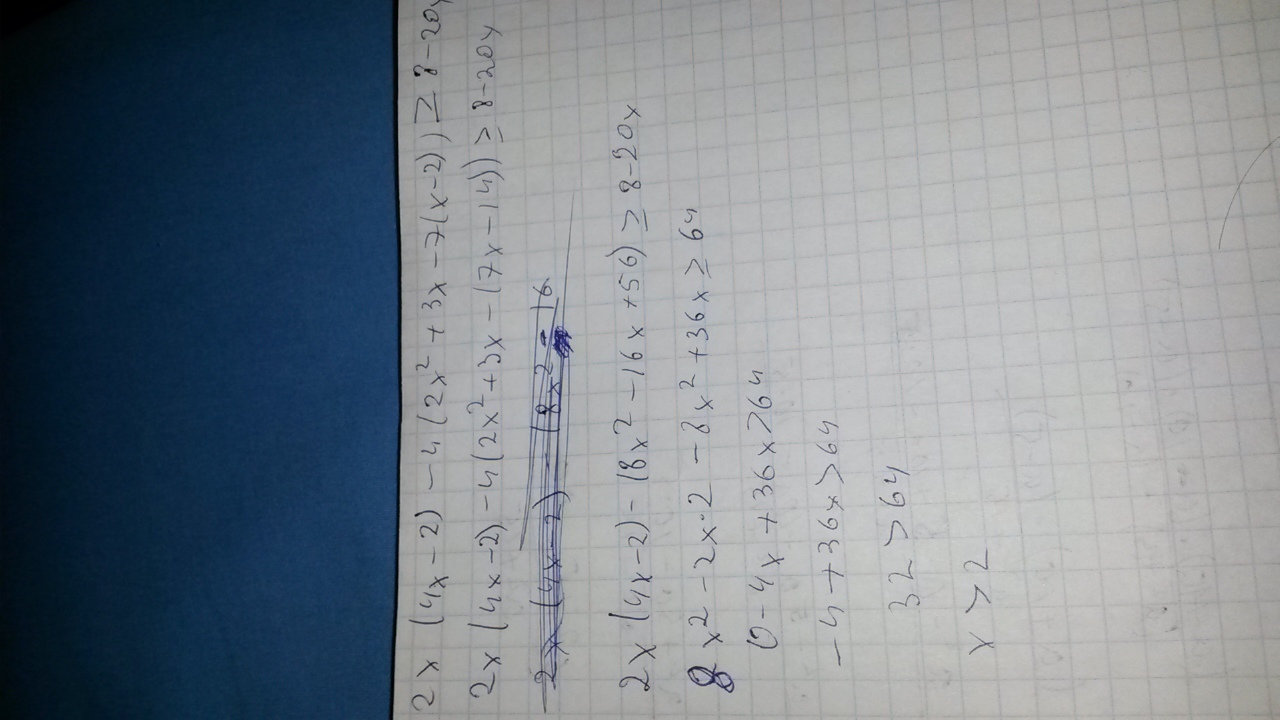 2x (4x-2) -4 (2x² + 3x -7(x-2)) ≥ 8-20x
2x (4x-2) -4(2x²+3x-(7x-14)) ≥ 8-20x
2x (4x-2) - (8x² - 16
2x (4x-2) - (8x² -16x +56) ≥ 8-20x
8x² -2x·2 -8x² +36x ≥ 64
0-4x +36x ≥ 64
-4 +36x > 64
32 > 64
x > 2